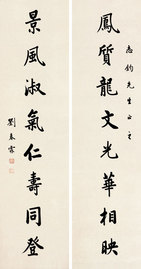 志鈞先生正之
鳳質龍文光華相映
景風淑氣仁壽同登
劉春霖